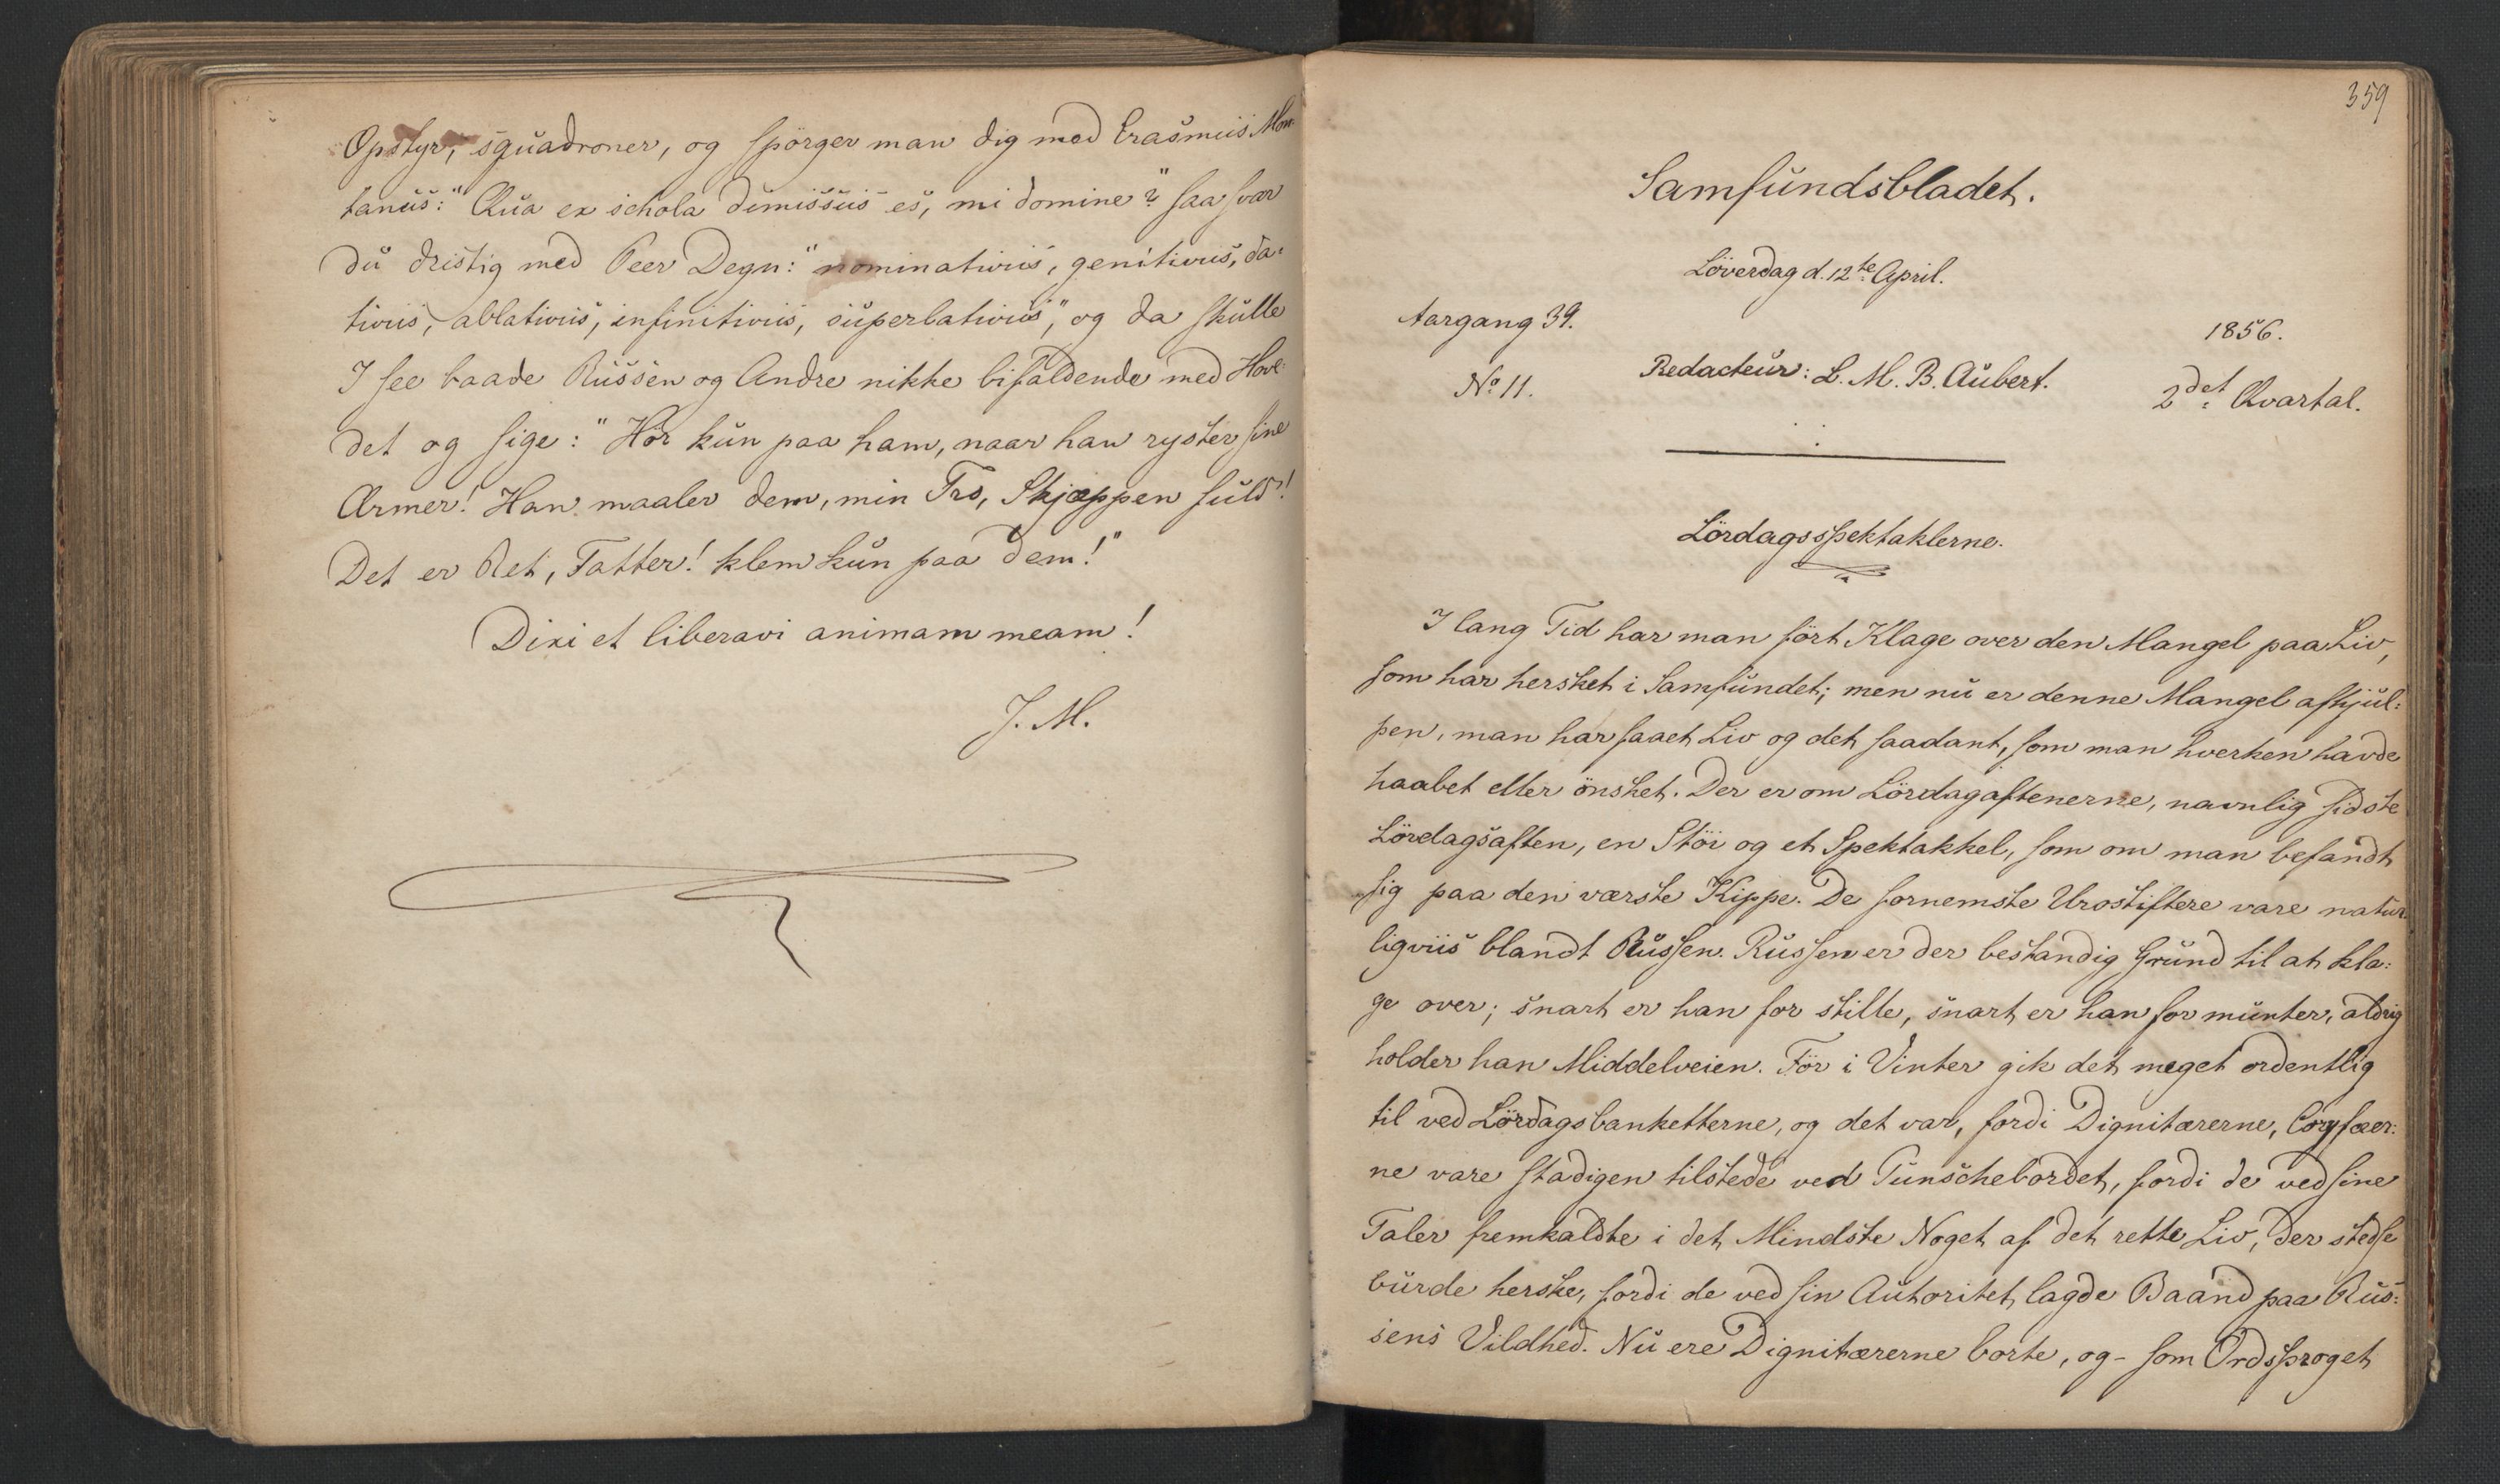 Opstyr, sqvadroner, og spörger man dig med Erasmus Mon-
tanus: "Qua ex schola dimissus es, mi domine"? saa svar
du dristig med Peer Degn: "nominativus, genitivus, da-
tivus, ablativus, infinitivus, superlativus", og da skulle
I see baade Russen og Andre nikke bifaldende med Hove-
det og sige: "Hör kun paa ham, naar han ryster sine
Ærmer! Han maaler dem, min Tro, Skjæppen fuld!
Det er Ret, Fatter! klem kun paa dem!"
Dixi et liberavi animam meam!
J. M.
359
Samfundsbladet.
Löverdag d. 12te April.
Aargang 39.
1856.
No 11.
Redacteur: L. M. B. Aubert.
2det Qvartal.
Lördagsspektaklerne.
I lang Tid har man fört Klage over den Mangel paa Liv,
som har hersket i Samfundet; men nu er denne Mangel afhjul-
pen, man har faaet Liv og det saadant, som man hverken havde
haabet eller önsket. Der er om Lördagaftenerne, navnlig sidste
Lördagsaften, en Stöi og et Spektakkel, som om man befandt
sig paa den værste Kippe. De fornemste Urostiftere vare natur-
ligviis blandt Russen. Russen er der bestandig Grund til at kla-
ge over; snart er han for stille, snart er han for munter, aldrig
holder han Middelveien. För i Vinter gik det meget ordentlig
til ved Lördagsbanketterne, og det var, fordi Dignitærerne, Coryfæer-
ne vare stadigen tilstede ved Punschebordet, fordi de ved sine
Taler fremkaldte i det Mindste Noget af det rette Liv, der stedse
burde herske, fordi de ved sin Autoritet lagde Baand paa Rus-
sens Vildhed. Nu ere Dignitærerne borte, og - som Ordsproget